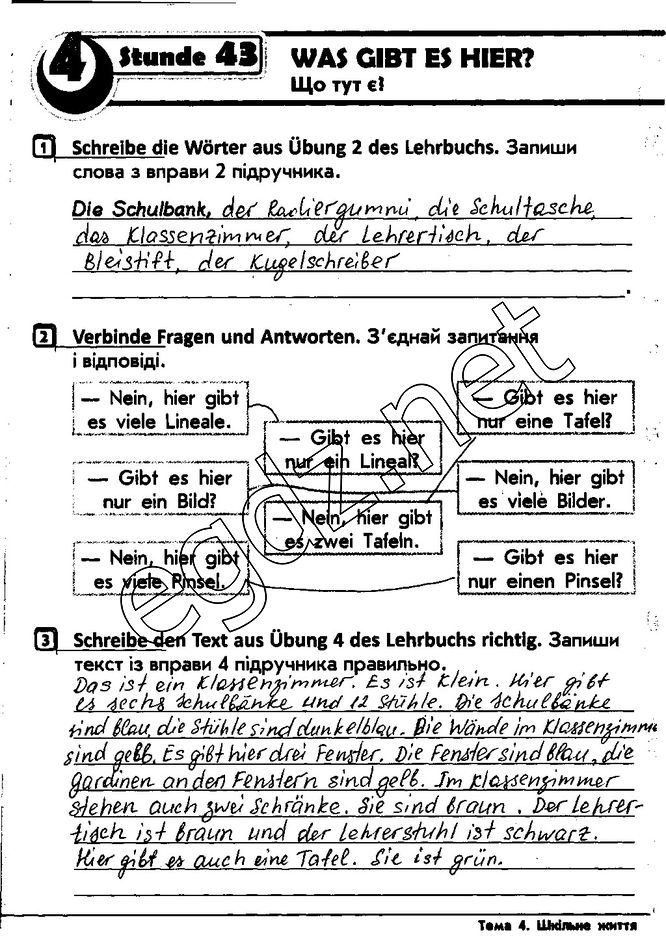 4 Stunde 43
WAS GIBT ES HIER?
Що тут є?
1 Schreibe die Wörter aus Übung 2 des Lehrbuchs. Запиши
слова з вправи 2 підручника.
Die Schulbank, der Radiergummi, die Schultasche,
das Klassenzimmer, der Lehrertisch, der
Bleistift, der Kugelschreiber
2 Verbinde Fragen und Antworten. З'єднай запитання
і відповіді.
— Nein, hier gibt
es viele Lineale.
— Gibt es hier
nur ein Lineal?
— Gibt es hier
nur eine Tafel?
— Gibt es hier
nur ein Bild?
— Nein, hier gibt
es zwei Tafeln.
— Nein, hier gibt
es viele Bilder.
— Nein, hier gibt
es viele Pinsel.
— Gibt es hier
nur einen Pinsel?
egdz.net
3 Schreibe den Text aus Übung 4 des Lehrbuchs richtig. Запиши
текст із вправи 4 підручника правильно.
Das ist ein Klassenzimmer. Es ist klein. Hier gibt
es sechs Schulbänke und 12 Stühle. Die Schulbänke
sind blau, die Stühle sind dunkelblau. Die Wände im Klassenzimme
sind gelb. Es gibt hier drei Fenster. Die Fenster sind blau, die
Gardinen an den Fenstern sind gelb. Im Klassenzimmer
stehen auch zwei Schränke. Sie sind braun. Der Lehrer-
tisch ist braun und der Lehrerstuhl ist schwarz.
Hier gibt es auch eine Tafel. Sie ist grün.
Тема 4. Шкільне життя